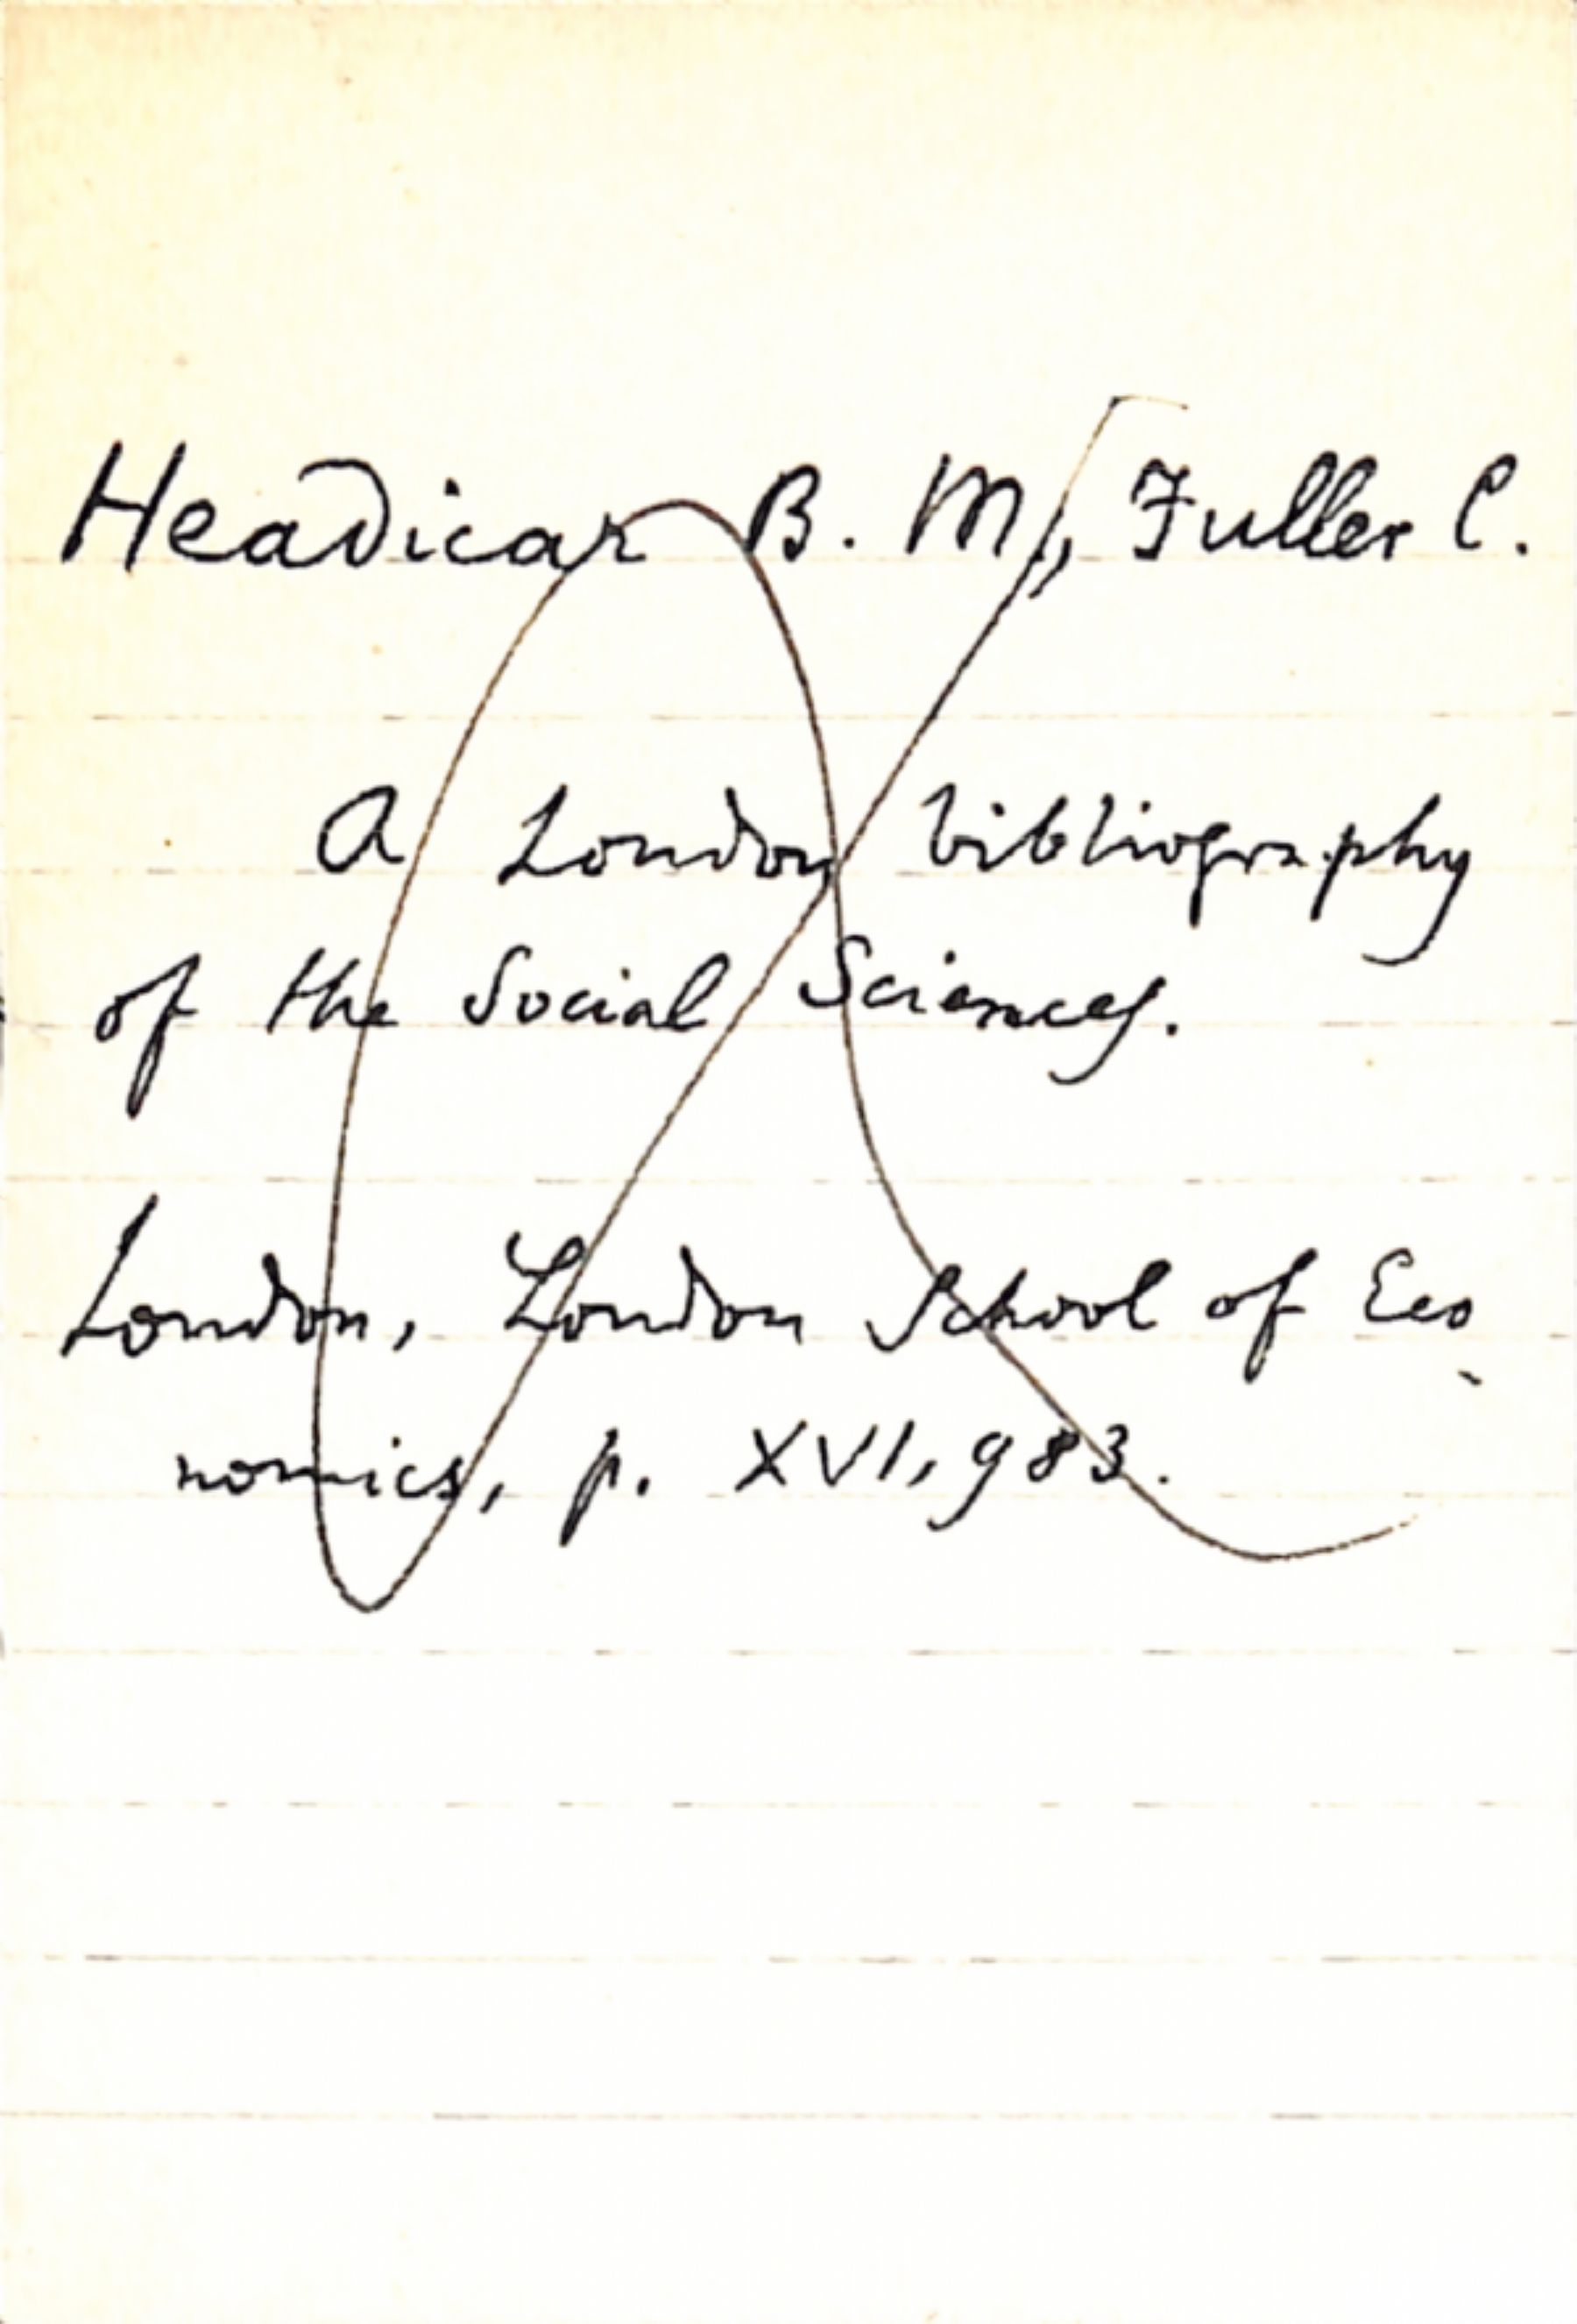 Headicar B. M., Fuller C.
A London bibliography
of the Social Sciences.
London, London School of Eco-
nomics, p. XVI, 983.